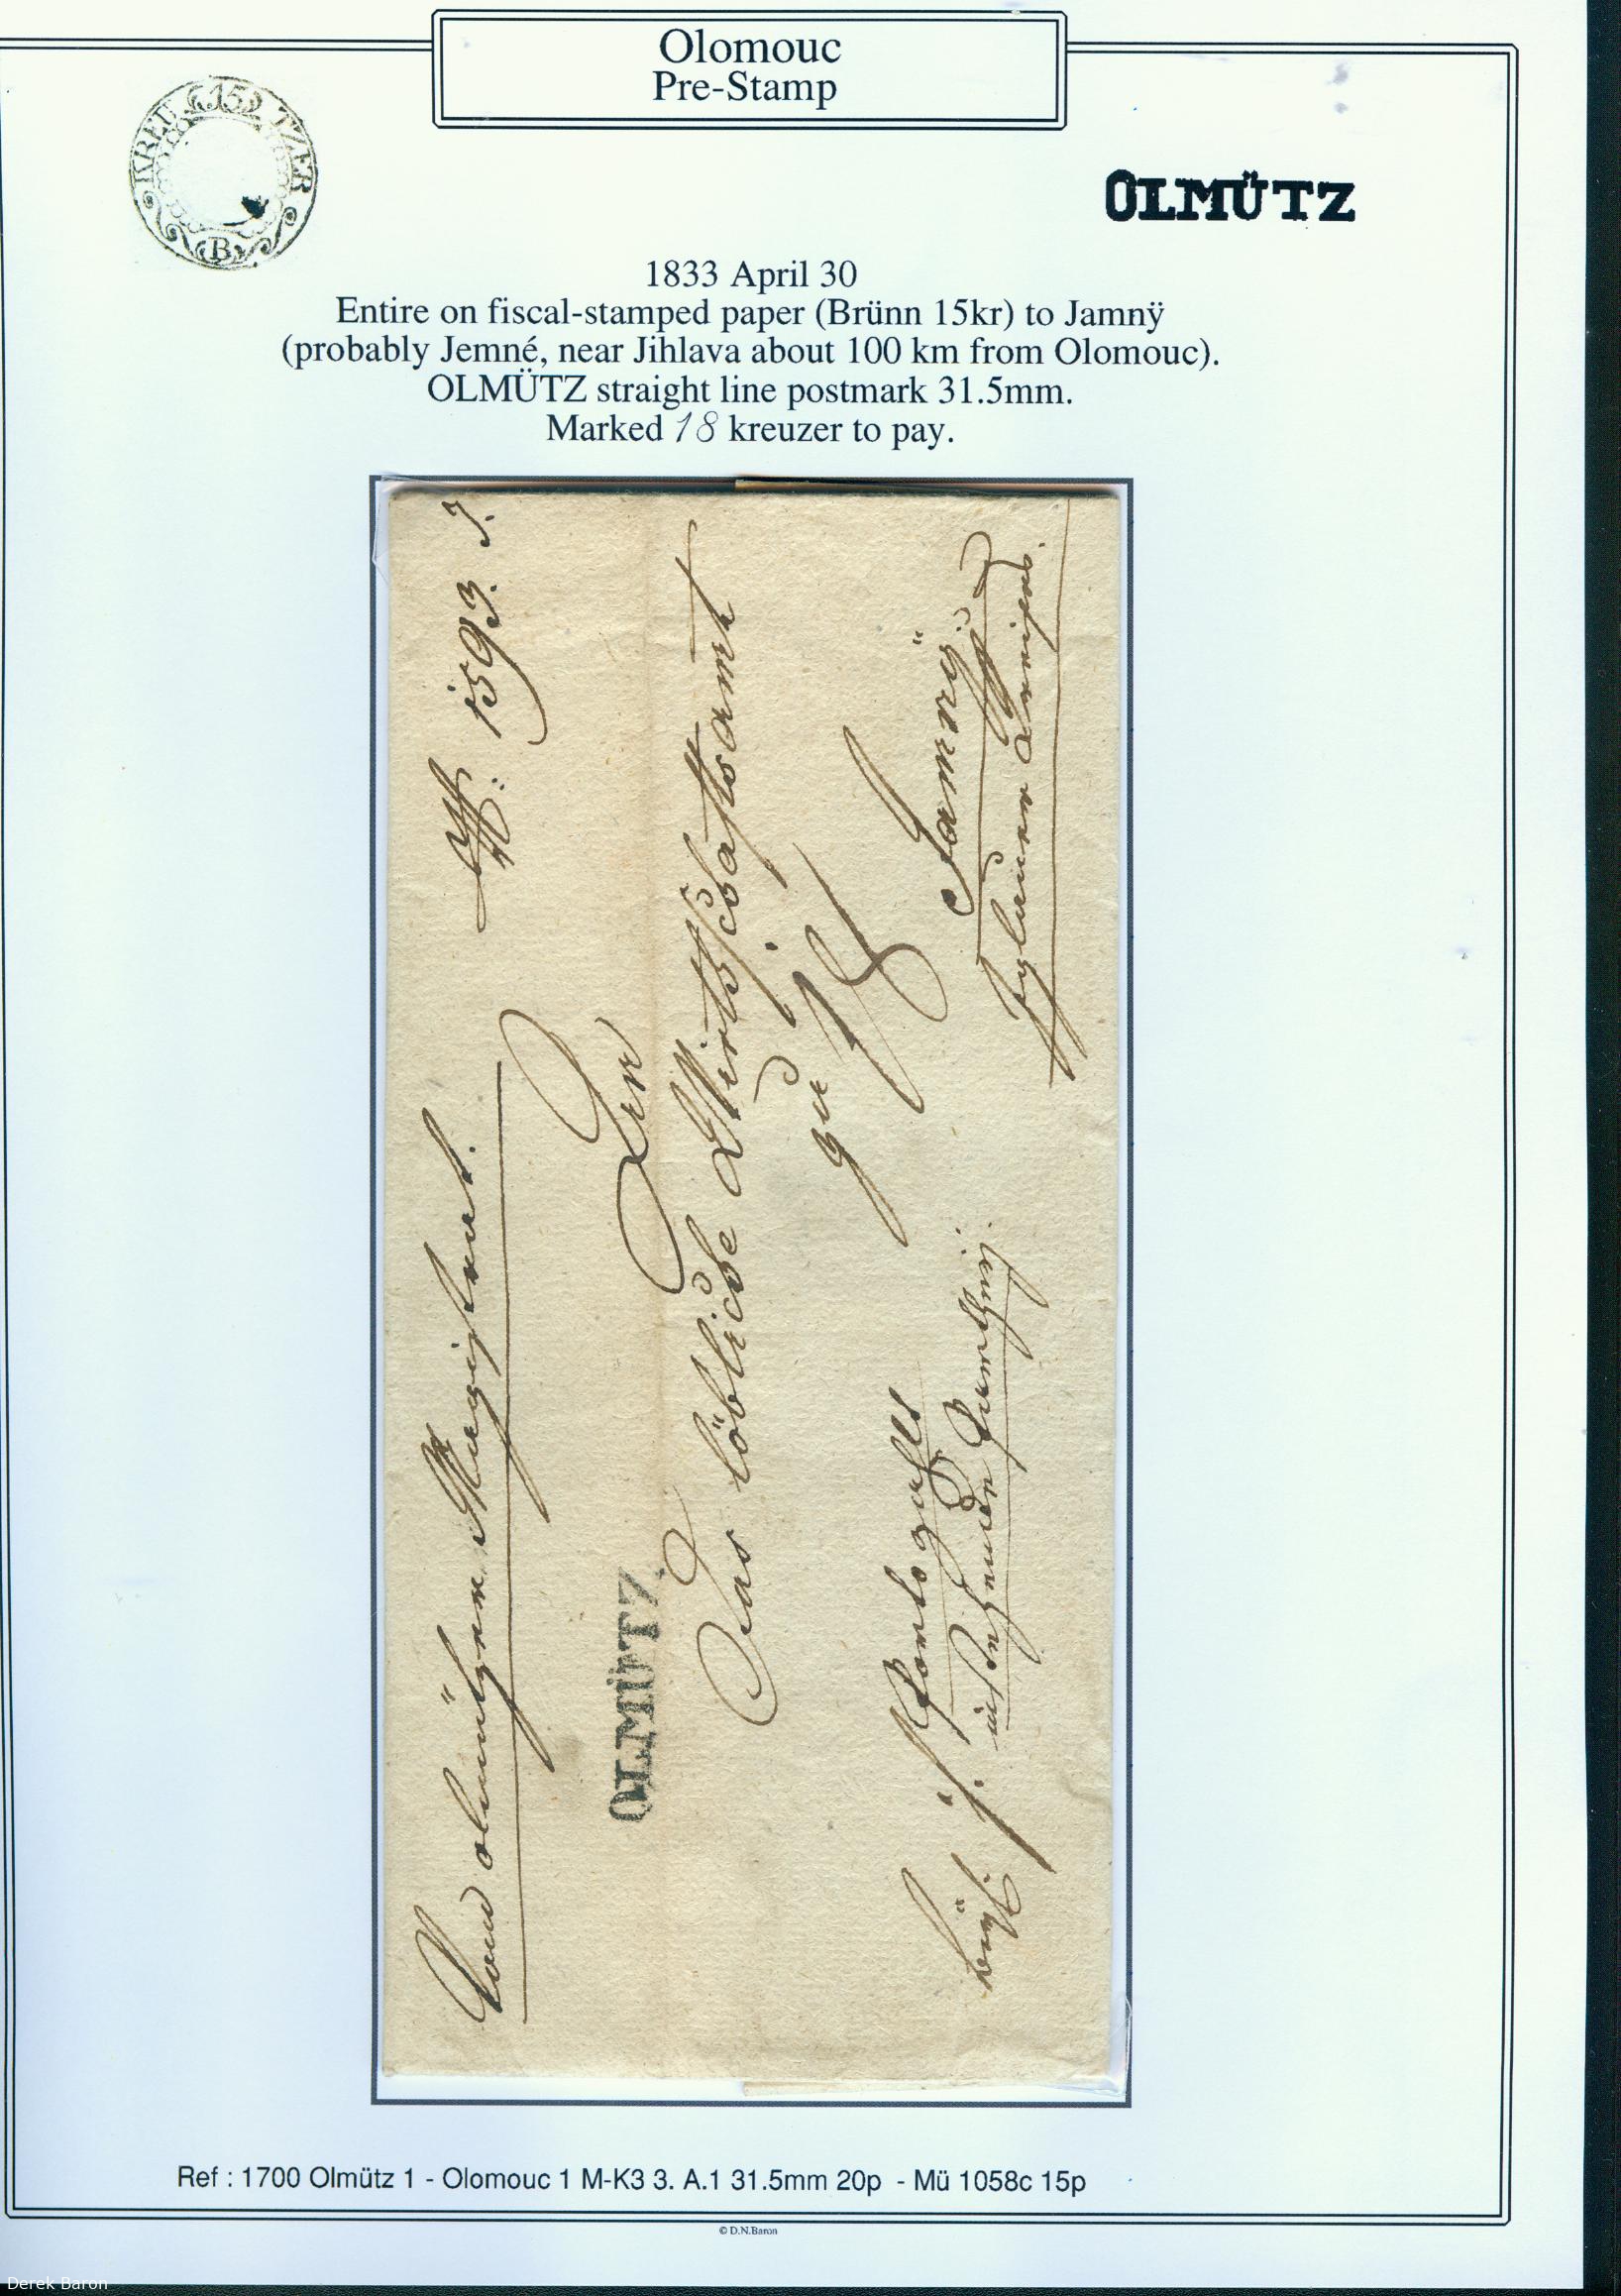 Olomouc
Pre-Stamp
KREU 15 TZER
B
OLMÜTZ
1833 April 30
Entire on fiscal-stamped paper (Brünn 15kr) to Jamnÿ
(probably Jemné, near Jihlava about 100 km from Olomouc).
OLMÜTZ straight line postmark 31.5mm.
Marked 18 kreuzer to pay.
Vom olmützer Magistrat.
N: 1593. J.
OLMÜTZ
Das löbliche Wirthschaftsamt
zu
18
Jamnÿ
Iglauer Kreises.
Ref : 1700 Olmütz 1 - Olomouc 1 M-K3 3. A.1 31.5mm 20p - Mü 1058c 15p
© D.N.Baron
Derek Baron